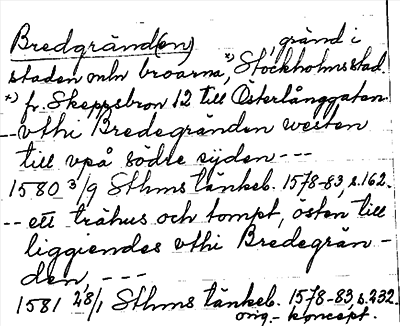 Bredgränd(en), gränd i
staden mln broarna,*) Stockholms stad.
*) fr. Skeppsbron 12 till Österlånggatan.
-- vthi Bredegränden westen
till vpå södre sijden ---
1580 3/9 Sthms tänkeb. 1578-83, s. 162.
-- ett trähus och tompt, östen till
liggiendes vthi Bredegrän-
den, ---
1581 28/1 Sthms tänkeb. 1578-83, s. 232.
orig.- koncept.